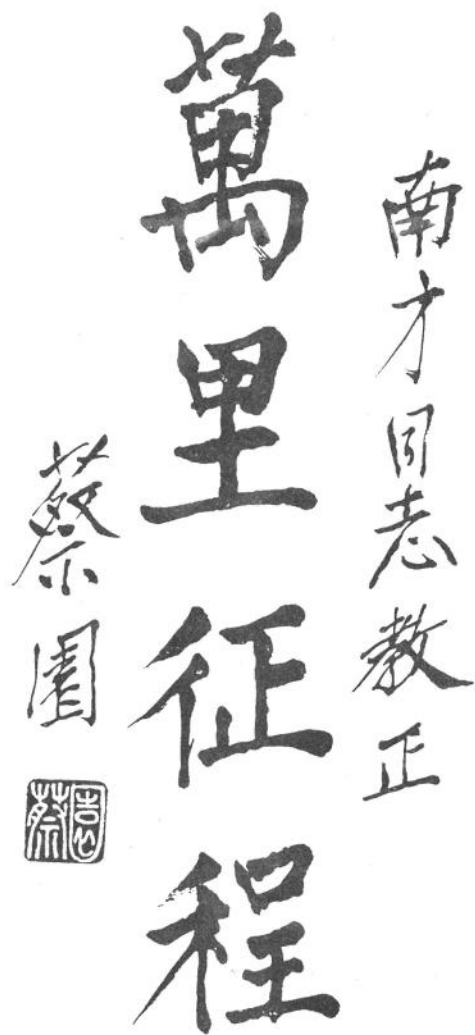 南才同志教正
萬里征程
蔡園
蔡園